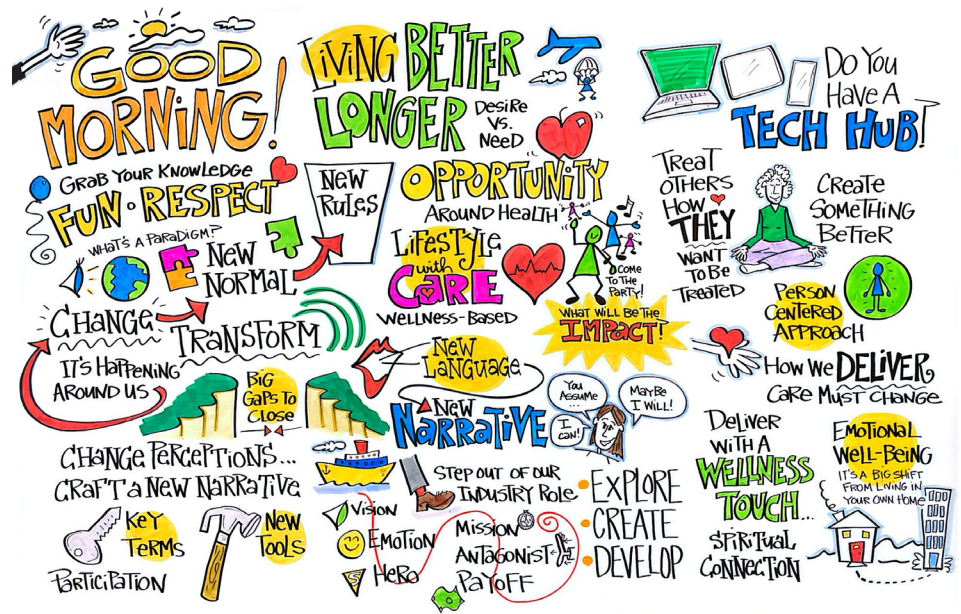 GOOD
MORNING!
GRAB YOUR KNOWLEDGE
FUN · RESPECT
WHAT'S A PARADIGM?
NEW
NORMAL
NEW
RULES
CHANGE
TRANSFORM
IT'S HAPPENING
AROUND US
BIG
GAPS TO
CLOSE
CHANGE PERCEPTIONS...
CRAFT A NEW NARRATIVE
KEY
TERMS
NEW
TOOLS
PARTICIPATION
LIVING BETTER
LONGER
DESIRE
VS.
NEED
OPPORTUNITY
AROUND HEALTH
LIFESTYLE
with
CARE
WELLNESS-BASED
COME
TO THE
PARTY!
WHAT WILL BE THE
IMPACT!
NEW
LANGUAGE
NEW
NARRATIVE
YOU
ASSUME
...
I
CAN!
MAYBE
I WILL!
STEP OUT OF OUR
INDUSTRY ROLE
VISION
EMOTION
HERO
MISSION
ANTAGONIST
PAYOFF
• EXPLORE
• CREATE
• DEVELOP
DO YOU
HAVE A
TECH HUB!
TREAT
OTHERS
HOW
THEY
WANT
TO BE
TREATED
CREATE
SOMETHING
BETTER
PERSON
CENTERED
APPROACH
HOW WE DELIVER
CARE MUST CHANGE
DELIVER
WITH A
WELLNESS
TOUCH...
SPIRITUAL
CONNECTION
EMOTIONAL
WELL-BEING
IT'S A BIG SHIFT
FROM LIVING IN
YOUR OWN HOME